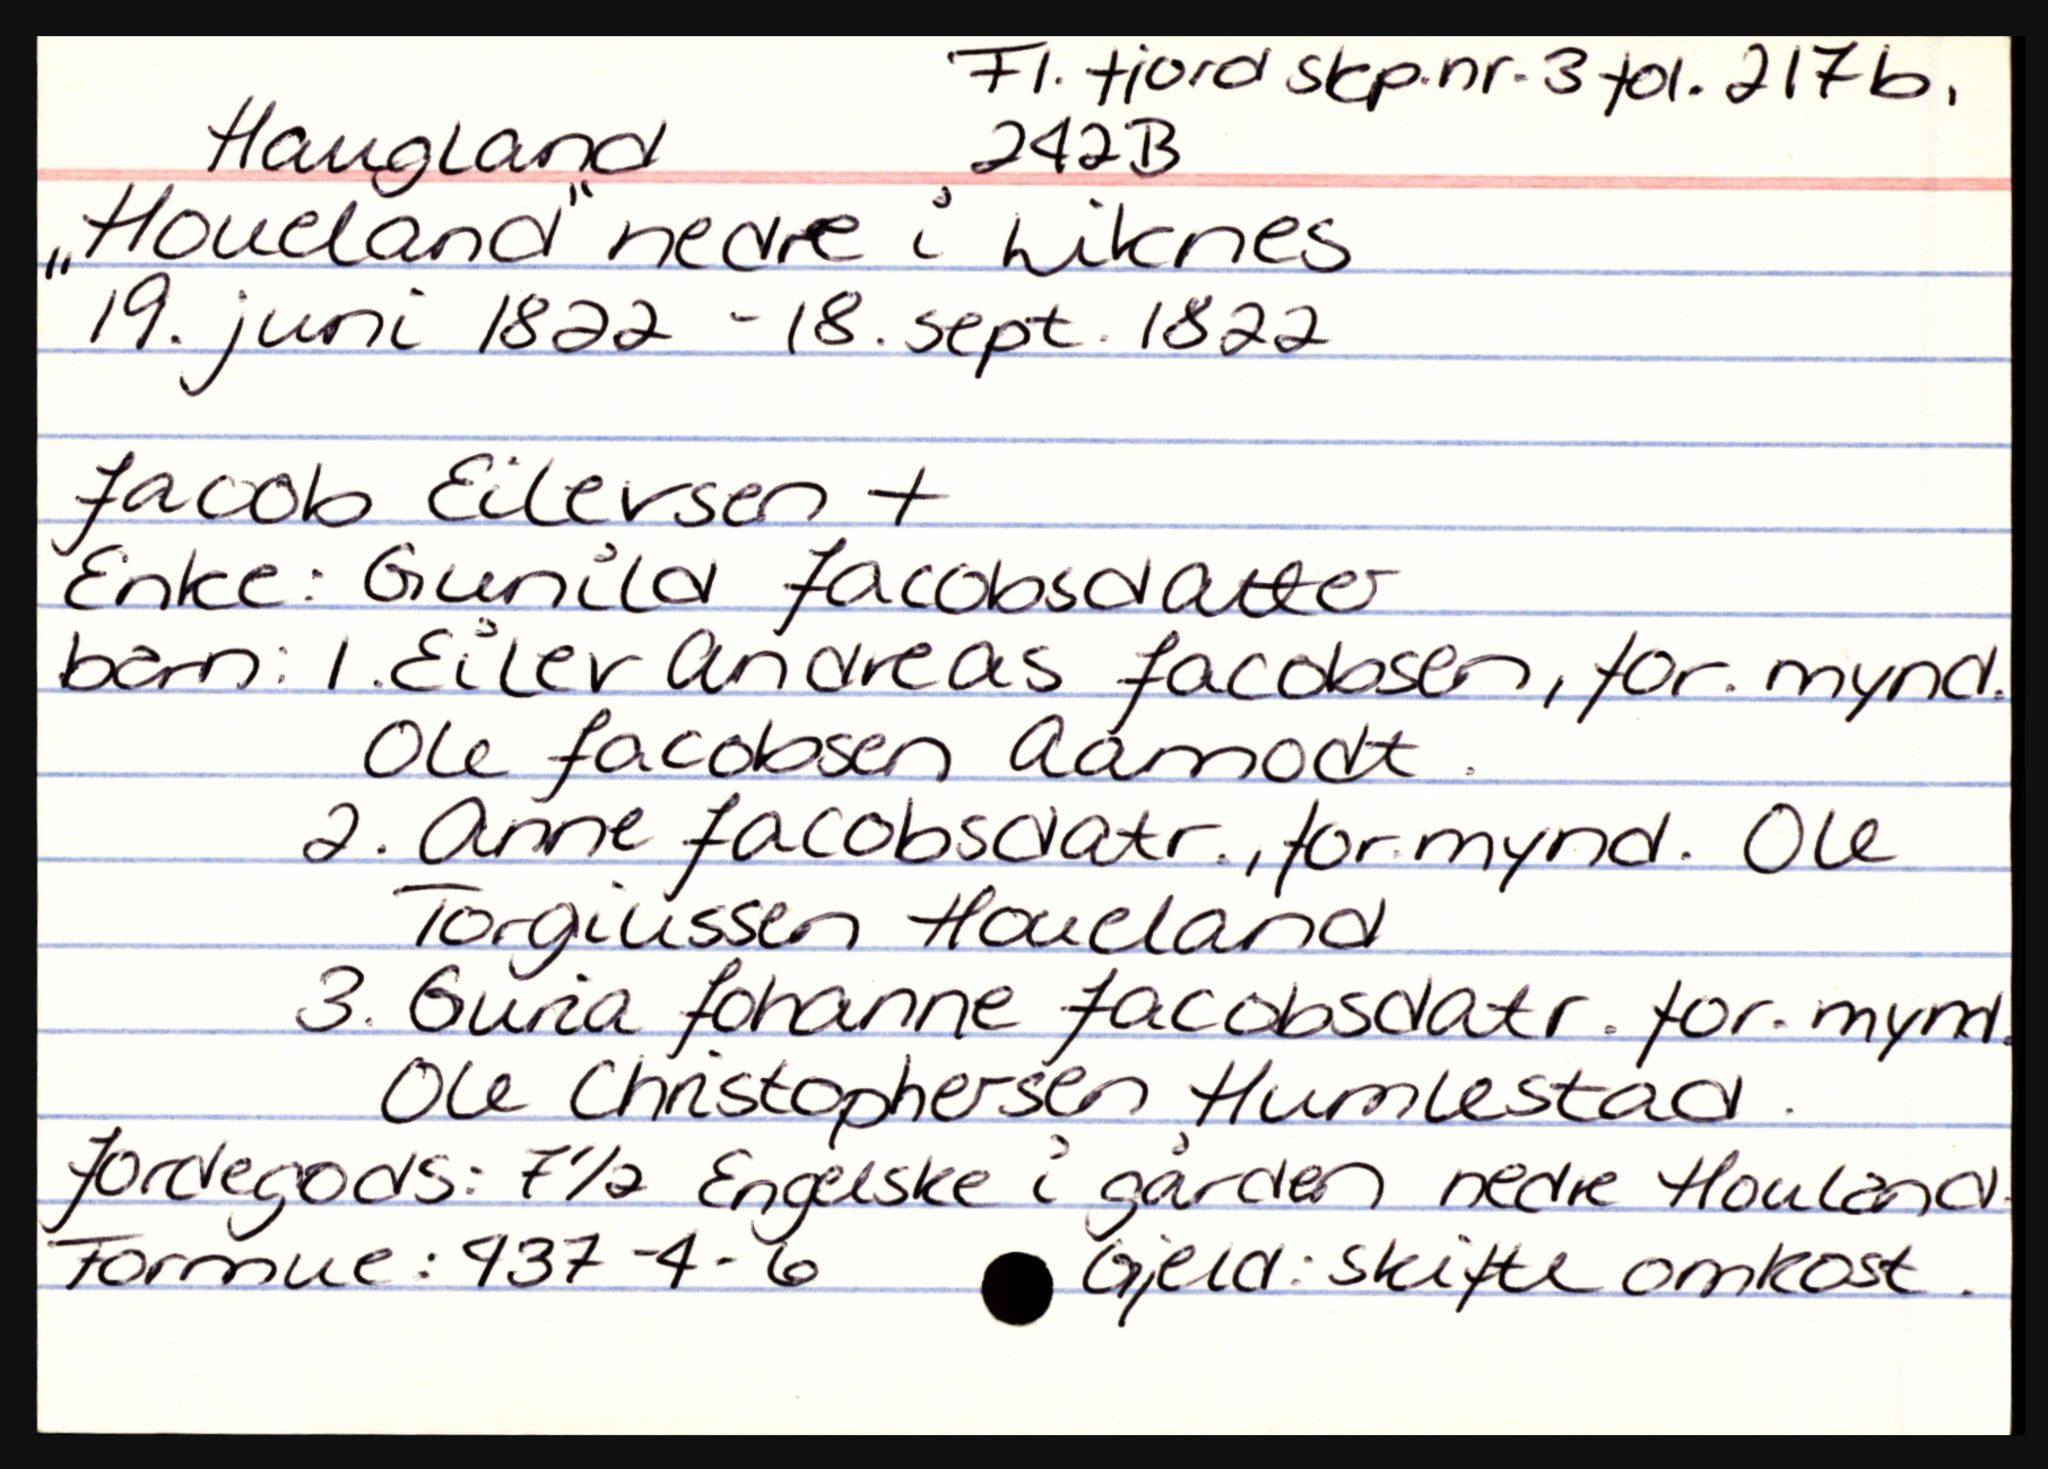 Fl. fjord skp.nr. 3 fol. 217b,
Haugland 242B
„Houeland" nedre i Liknes
19. juni 1822 - 18. sept. 1822
Jacob Eilevsen +
Enke: Gunild Jacobsdatter
barn: 1. Eilev Andreas Jacobsen, for. mynd.
Ole Jacobsen Aamodt.
2. Anne Jacobsdatr., for.mynd. Ole
Torgiussen Houeland
3. Guria Johanne Jacobsdatr. for. mynd.
Ole Christophersen Humlestad.
Jordegods: 7 1/2 Engelske i gården nedre Houland.
Formue: 937-4-6 Gjeld: skifte omkost.